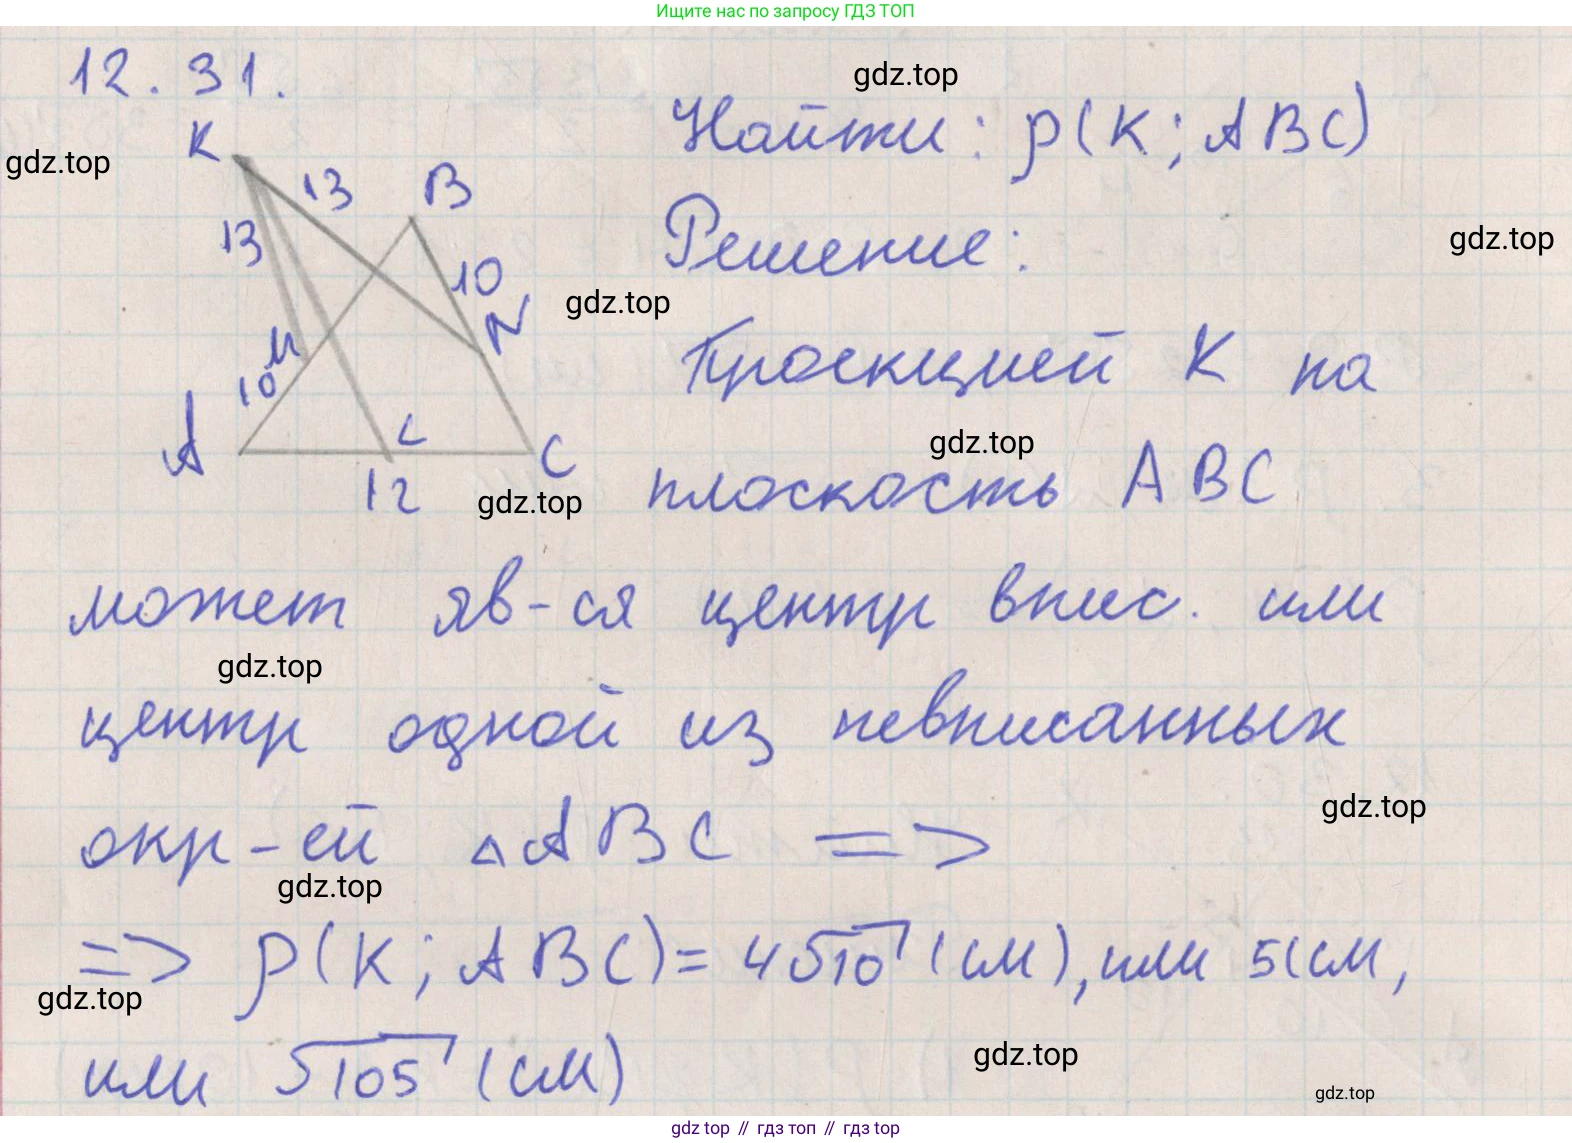 Ищите нас по запросу ГДЗ ТОП
12.31.
gdz.top
Найти: ρ(K; ABC)
K
gdz.top
13
B
13
Решение:
gdz.top
10
gdz.top
N
M
Проекцией K на
10
A
L
C
gdz.top
12
gdz.top
плоскость ABC
может яв-ся центр впис. или
gdz.top
центр одной из невписанных
gdz.top
окр-ей △ABC =>
gdz.top
=> ρ(K; ABC) = 4√10 (см), или 5(см,
gdz.top
или √105 (см)
gdz.top
gdz.top
gdz top // гдз топ // гдз top